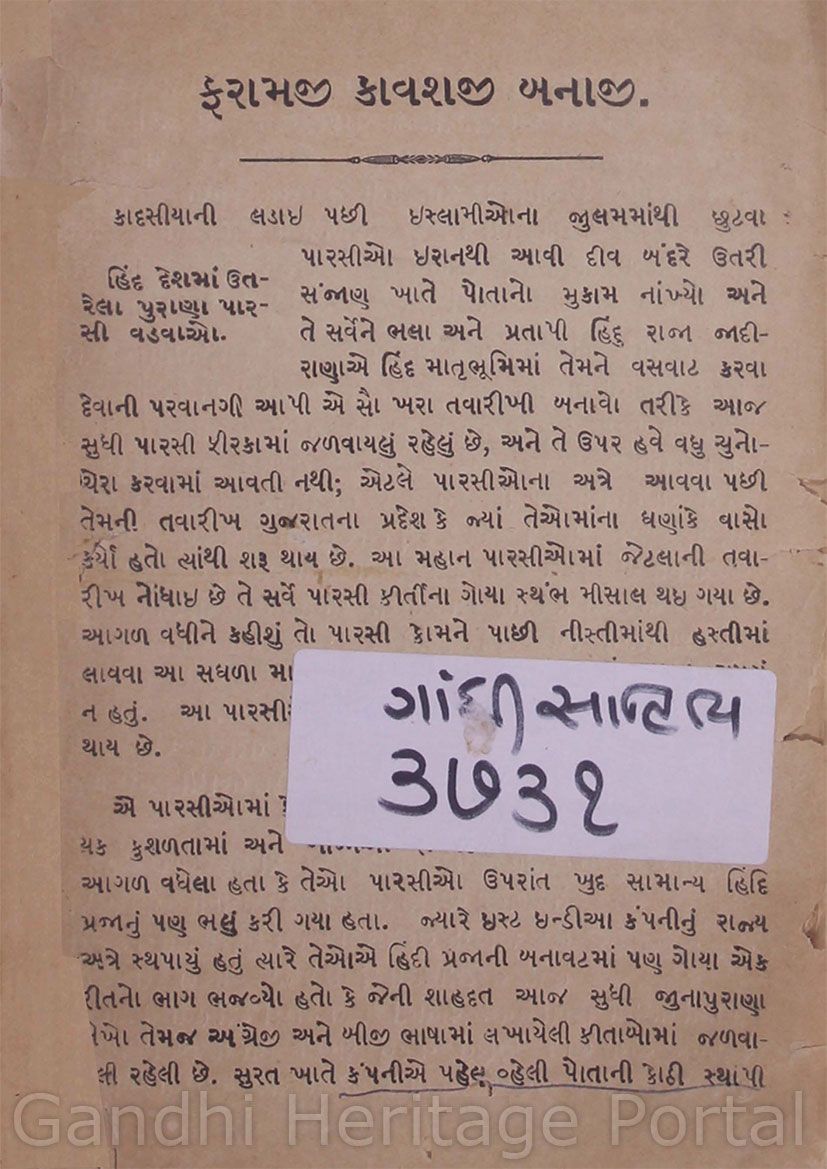 ફરામજી કાવશજી બનાજી.
કાદસીયાની લડાઇ પછી ઇસ્લામીઓના જુલમમાંથી છુટવા
પારસીઓ ઇરાનથી આવી દીવ બંદરે ઉતરી
હિંદ દેશમાં ઉત-
રેલા પુરાણા પાર-
સી વડવાઓ.
સંજાણ ખાતે પોતાનો મુકામ નાંખ્યો અને
તે સર્વેને ભલા અને પ્રતાપી હિંદુ રાજા જાદી-
રાણાએ હિંદ માતૃભૂમિમાં તેમને વસવાટ કરવા
દેવાની પરવાનગી આપી એ સૌ ખરા તવારીખી બનાવો તરીકે આજ
સુધી પારસી ફીરકામાં જળવાયલું રહેલું છે, અને તે ઉપર હવે વધુ ચુનો-
ચેરા કરવામાં આવતી નથી; એટલે પારસીઓના અત્રે આવવા પછી
તેમની તવારીખ ગુજરાતના પ્રદેશ કે જ્યાં તેઓમાંના ઘણાંકે વાસો
કર્યો હતો ત્યાંથી શરૂ થાય છે. આ મહાન પારસીઓમાં જેટલાની તવા-
રીખ નોંધાઇ છે તે સર્વે પારસી કીર્તીના ગોયા સ્થંભ મીસાલ થઇ ગયા છે.
આગળ વધીને કહીશું તો પારસી કોમને પાછી નીસ્તીમાંથી હસ્તીમાં
લાવવા આ સઘળા
ન હતું. આ
થાય છે.
ગાંધી સાહિત્ય
૩૭૩૧
એ પારસીઓમાં
યક કુશળતામાં અને
આગળ વધેલા હતા કે તેઓ પારસીઓ ઉપરાંત ખુદ સામાન્ય હિંદિ
પ્રજાનું પણ ભલું કરી ગયા હતા. જ્યારે ઇસ્ટ ઇન્ડીઆ કંપનીનું રાજ્ય
અત્રે સ્થપાયું હતું ત્યારે તેઓએ હિંદી પ્રજાની બનાવટમાં પણ ગોયા એક
રીતનો ભાગ ભજવ્યો હતો કે જેની શાહદત આજ સુધી જુનાપુરાણા
તેમજ અંગ્રેજી અને બીજી ભાષામાં લખાયેલી કીતાબોમાં જળવા-
રહેલી છે. સુરત ખાતે કંપનીએ પહેલ વ્હેલી પોતાની કોઠી સ્થાપી
Gandhi Heritage Portal